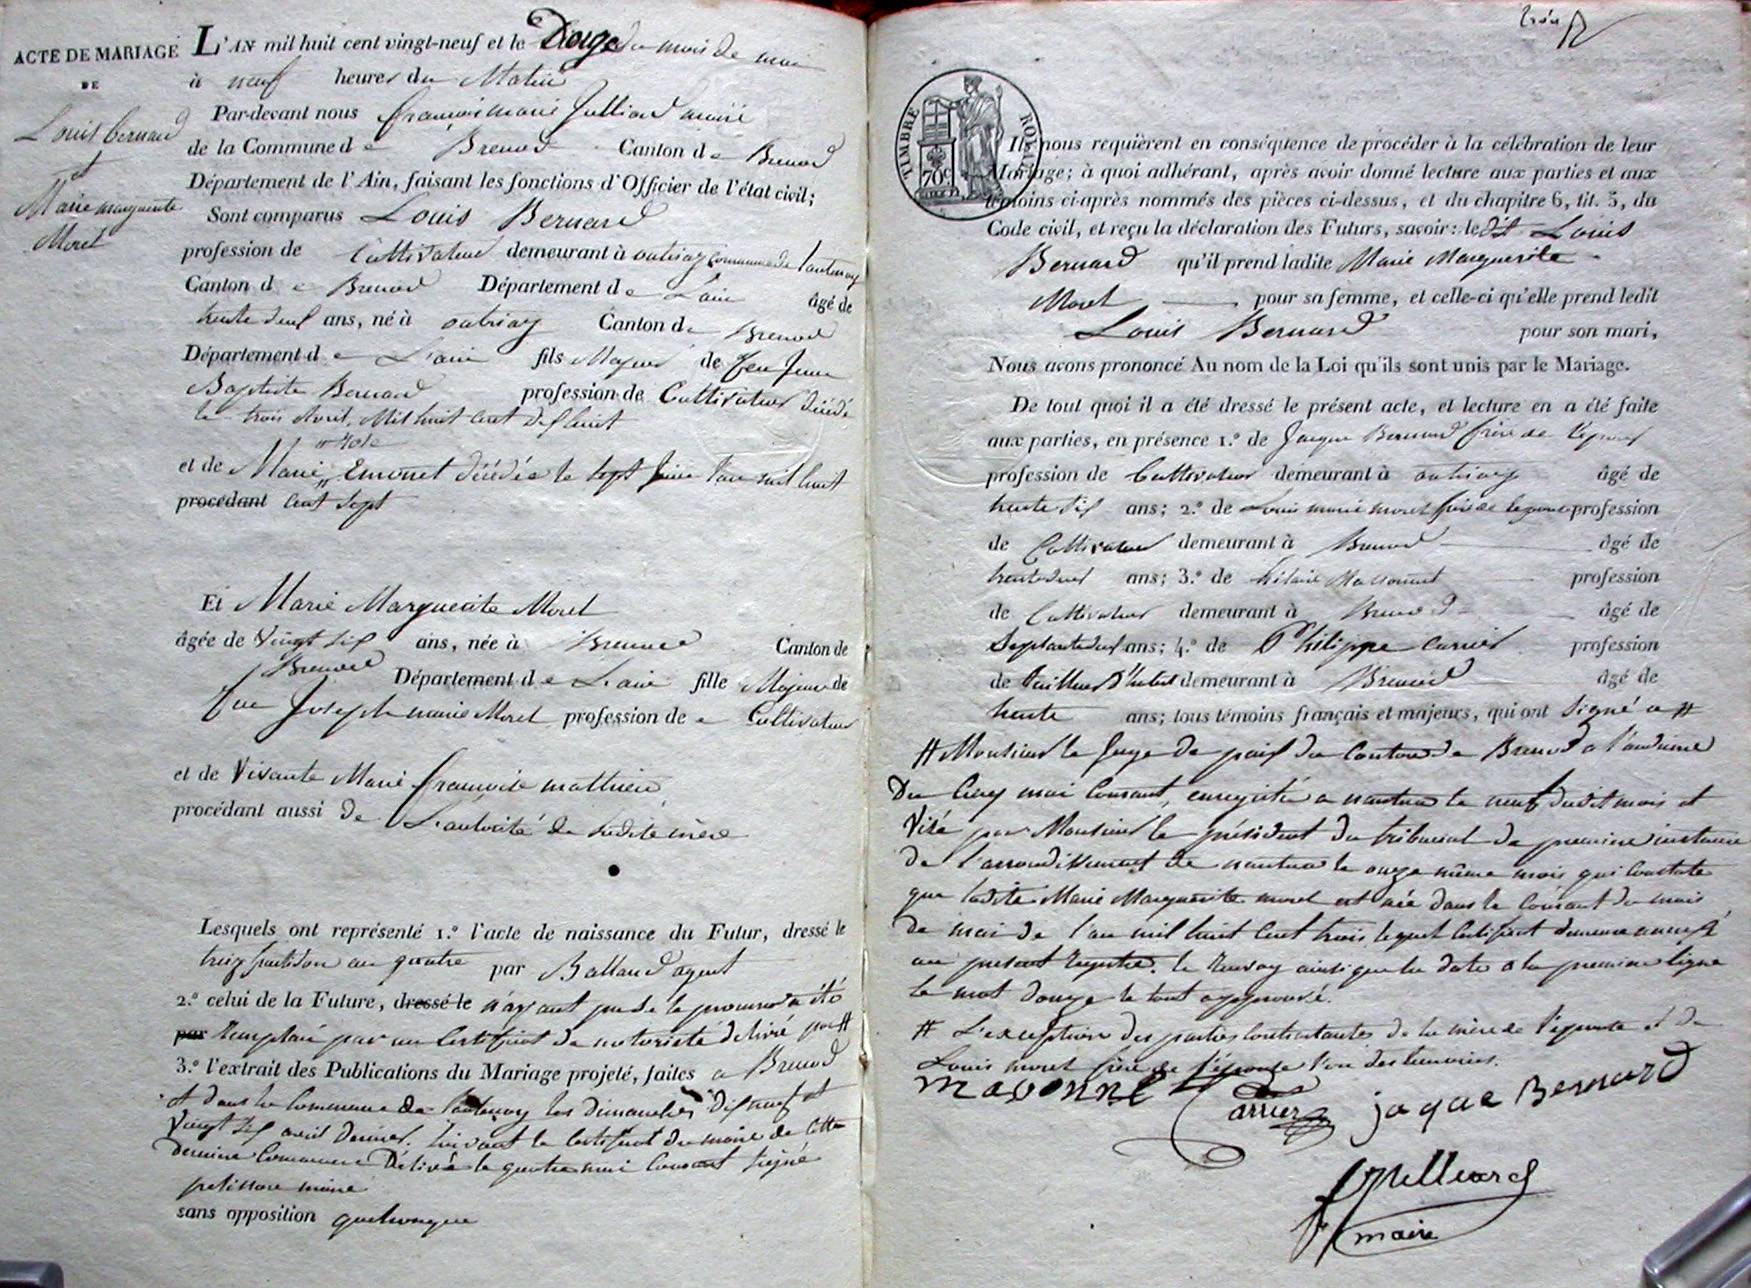 ACTE DE MARIAGE
DE
Louis Bernard
et
Marie marguerite
Moret
L'AN mil huit cent vingt-neuf et le Douze du mois de mai
à neuf heures du Matin
Par-devant nous françois marie Julliard maire
de la Commune de Brenod Canton de Brenod
Département de l'Ain, faisant les fonctions d'Officier de l'état civil;
Sont comparus Louis Bernard
profession de Cultivateur demeurant à outriaz commune de lantenay
Canton de Brenod Département de L'ain âgé de
trente deux ans, né à outriaz Canton de Brenod
Département de L'ain fils Majeur de feu Jean
Baptiste Bernard profession de Cultivateur décédé
le trois avril Mil huit cent dix huit
et de Marie Emonet décédée le sept Juin l'an mil huit
procédant cent sept
Et Marie Marguerite Moret
âgée de vingt six ans, née à Brenod Canton de
Brenod Département de L'ain fille Majeure de
feu Joseph marie Moret profession de Cultivateur
et de vivante Marie françoise mathieu
procédant aussi de L'autorité de sadite mère
Lesquels ont représenté 1.º l'acte de naissance du Futur, dressé le
treize fructidor an quatre par Balland agent
2.º celui de la Future, dressé le n'ayant pu se le procurer a été
par remplacé par un Certificat de notoriété délivré par #
3.º l'extrait des Publications du Mariage projeté, faites a Brenod
et dans la Commune de Lantenay les dimanches dix neuf et
vingt six avril dernier. suivant le Certificat du maire de cette
dernière Commune Délivré le quatre mai Courant signé
pelissson maire
sans opposition quelconque
TIMBRE ROYAL
70c
Ils nous requièrent en conséquence de procéder à la célébration de leur
Mariage; à quoi adhérant, après avoir donné lecture aux parties et aux
témoins ci-après nommés des pièces ci-dessus, et du chapitre 6, tit. 5, du
Code civil, et reçu la déclaration des Futurs, savoir: ledit Louis
Bernard qu'il prend ladite Marie Marguerite
Moret pour sa femme, et celle-ci qu'elle prend ledit
Louis Bernard pour son mari,
Nous avons prononcé Au nom de la Loi qu'ils sont unis par le Mariage.
De tout quoi il a été dressé le présent acte, et lecture en a été faite
aux parties, en présence 1.º de Jacque Bernard frère de l'époux
profession de Cultivateur demeurant à outriaz âgé de
trente six ans; 2.º de Louis marie moret frère de l'epouse profession
de Cultivateur demeurant à Brenod âgé de
trente deux ans; 3.º de hilaire Massonnet profession
de Cultivateur demeurant à Brenod âgé de
Septante deux ans; 4.º de Philippe Carrier profession
de Tailleur d'habit demeurant à Brenod âgé de
trente ans; tous témoins français et majeurs, qui ont signé a #
# Monsieur le Juge de paix du Canton de Brenod a l'audience
Du Cinq mai Courant, enregistré a nantua le neuf dudit mois et
Visé par Monsieur le président du tribunal de première instance
de l'arrondissement de nantua le onze même mois qui Constate
que ladite Marie Marguerite moret est née dans le Courant du mois
de mai de l'an mil huit Cent trois lequel Certificat demeure annexé
au présent Registre. le Renvoy ainsi que la date a la première ligne
le mot douze le tout approuvé.
# L'exception des parties Contractantes de la mère de l'épouse et de
Louis moret frère de l'épouse l'un des temoins.
masonnet
Carrier jaque Bernard
Julliard
maire